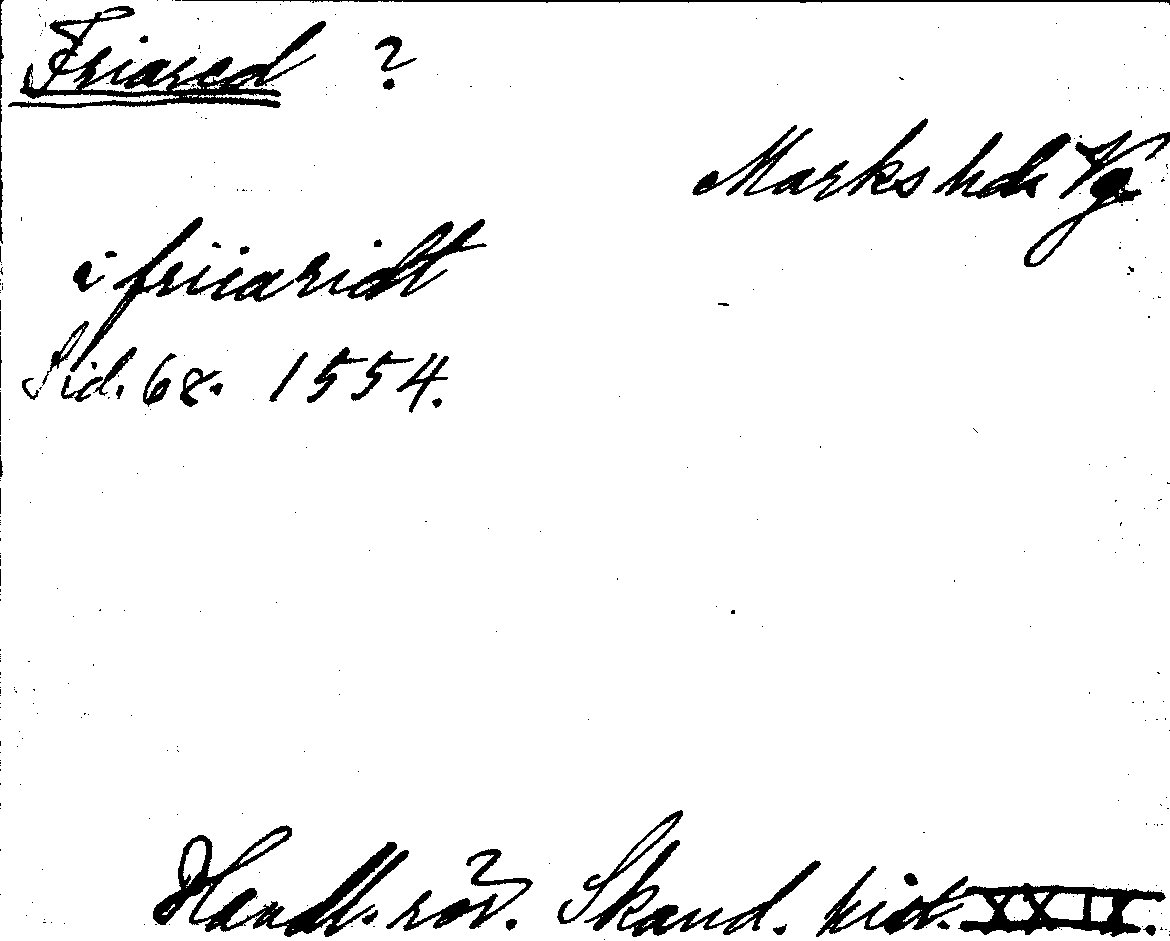 Friared ?
Marks hd. Vg
i friiaridt
Sid. 68. 1554.
Handl. rör. Skand. hist. XXIX.